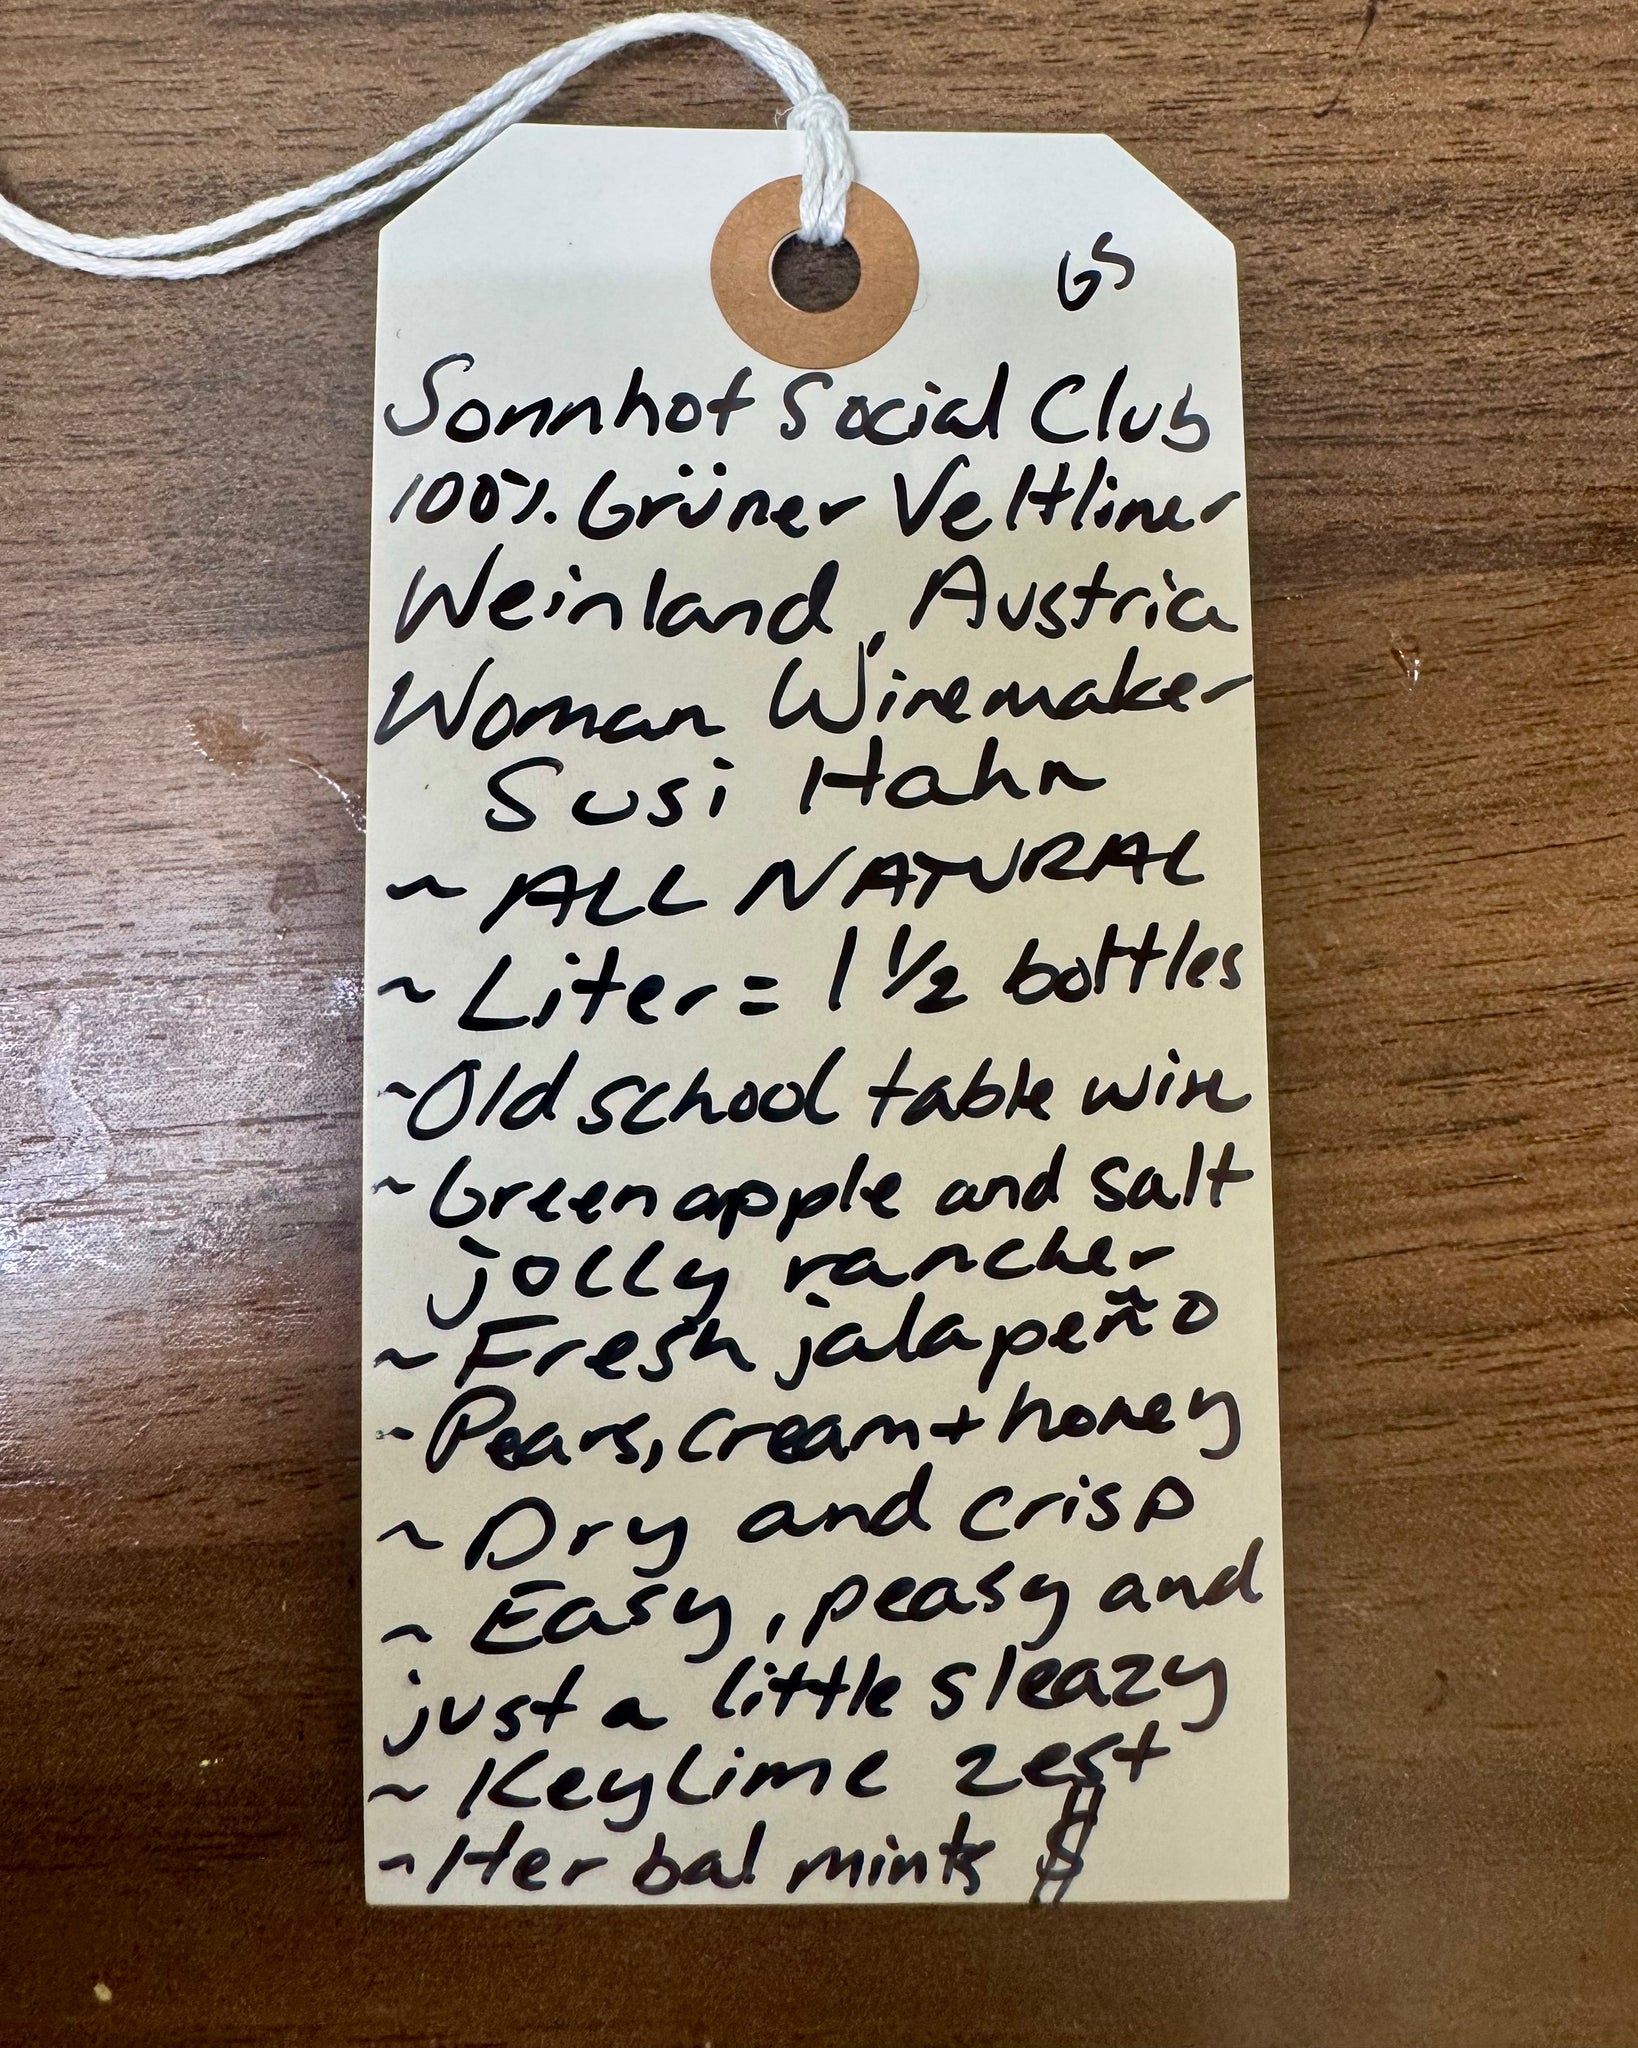 GS
Sonnhof Social Club
100%. Grüner Veltliner
Weinland, Austria
Woman Winemaker
Susi Hahn
~ ALL NATURAL
~ Liter = 1 1/2 bottles
~Old school table wine
~Green apple and salt
jolly rancher
~ Fresh jalapeño
~Pears, cream + honey
~ Dry and crisp
~ Easy, peasy and
just a little sleazy
~ Key lime zest
~Herbal mints $